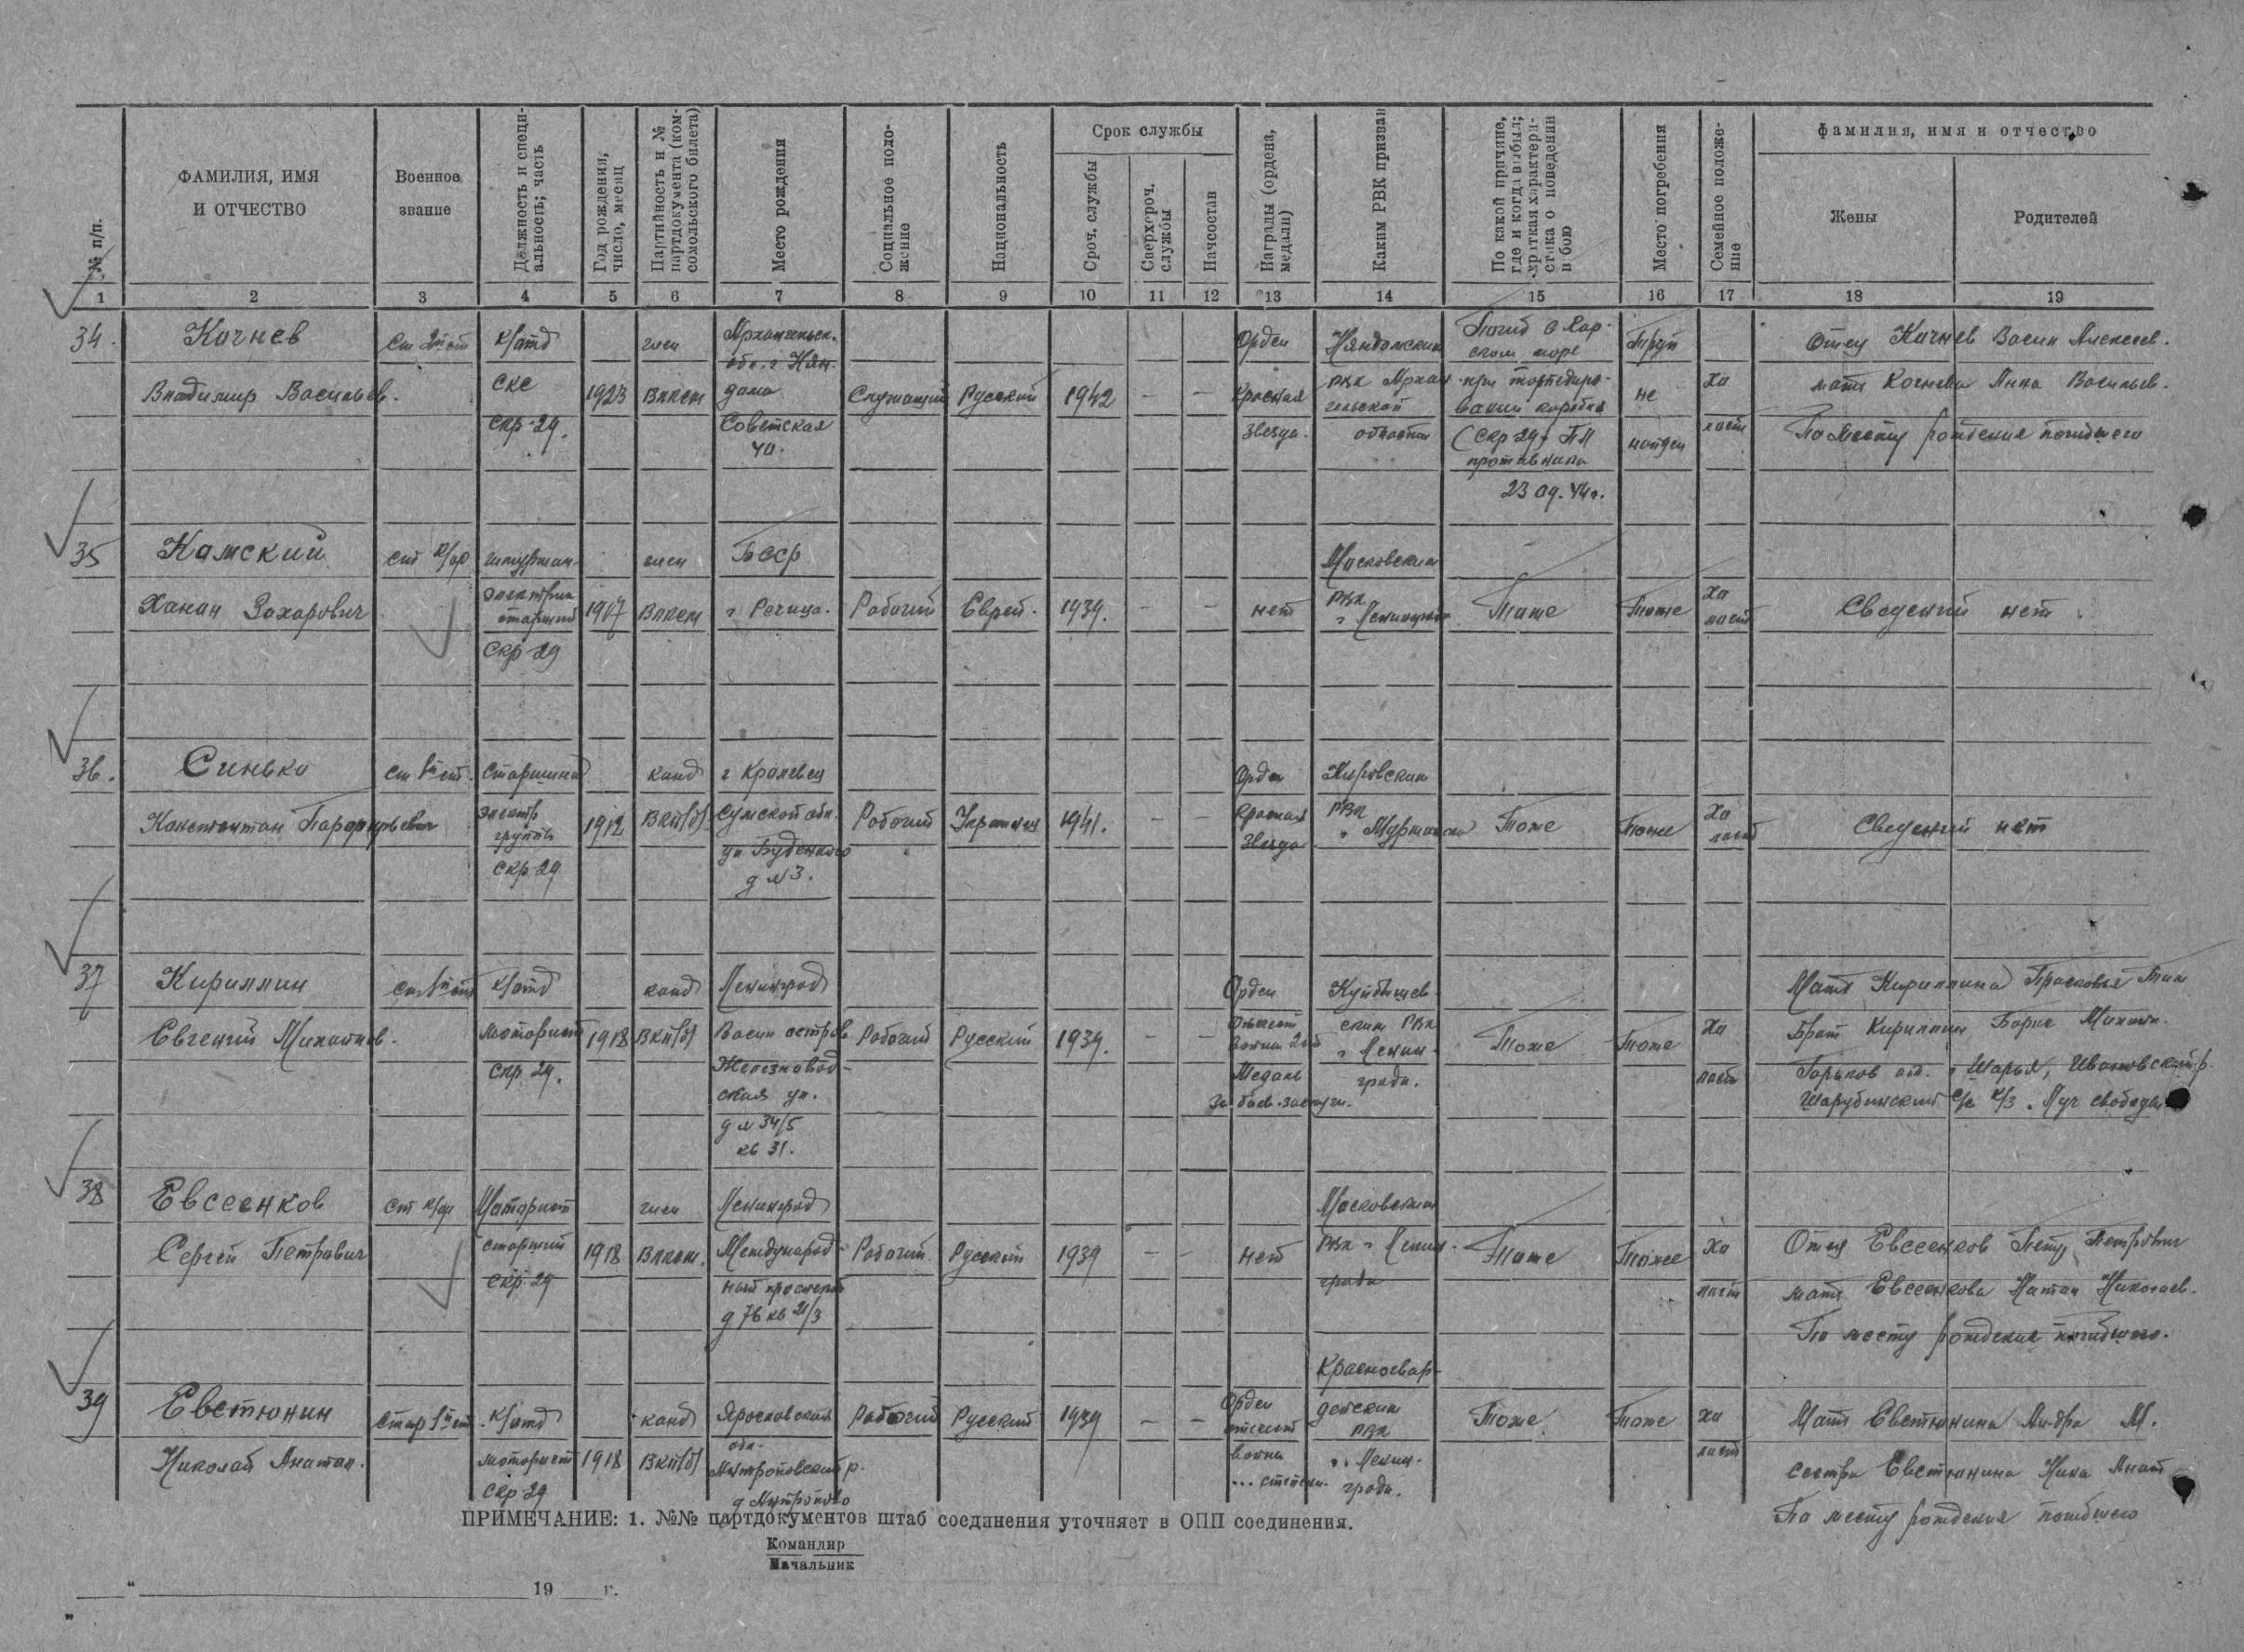 № п/п.
ФАМИЛИЯ, ИМЯ И ОТЧЕСТВО
Военное звание
Должность и специальность; часть
Год рождения, число, месяц
Партийность и № партдокумента (комсомольского билета)
Место рождения
Социальное положение
Национальность
Срок службы
Сроч. службы
Сверхсроч. службы
Начсостав
Награды (ордена, медали)
Каким РВК призван
По какой причине, где и когда выбыл; краткая характеристика о поведении в бою
Место погребения
Семейное положение
фамилия, имя и отчество
Жены
Родителей
1 2 3 4 5 6 7 8 9 10 11 12 13 14 15 16 17 18 19
34.
Качнев
Владимир Васильев.
Ст 2й ст
К/отд
СКС
СКР-29.
1923
член
ВЛКСМ
Архангельск.
обл. г Нян
дома
Советская
40.
Служащий
Русский
1942
— —
Орден
Красная
Звезда.
Няндомским
РВК Архан
гельской
области
Погиб в Кар-
ском море
при торпедиро-
вании корабля
(СКР-29) ПЛ
противника
23.09.44г.
Труп
не
найден
Хо
лост
Отец Качнев Васил Алексеев.
мать Качнева Анна Васильев.
По месту рождения погибшего
35
Камский
Ханан Захарович
Ст к/ф
штурман.
электрик
старший
СКР-29
1917
член
ВЛКСМ
БССР
г Речица.
Рабочий
Еврей.
1939.
— —
нет
Московским
РВК
г Ленинград
Тоже
Тоже
Хо
лост
Сведений нет
36.
Синько
Константин Парфирьевич
Ст 1й ст.
Старшина
электр
группы
СКР-29
1912
канд
ВКП(б)
г Кролевец
Сумской обл.
ул Буденного
д №3.
Рабочий
Украинец
1941.
— —
Орден
Красная
Звезда
Кировским
РВК
г Мурманска
Тоже
Тоже
Хо
лост
Сведений нет
37
Кириллин
Евгений Михайлов.
Ст 1й ст
К/отд
мотористт
СКР-29.
1918
канд
ВКП(б)
Ленинград
Васил остров
Железновод-
ская ул.
д № 34/5
кв 31.
Рабочий
Русский
1939.
— —
Орден
Отечест
войны 2ой
Медаль
За боев. заслуги.
Куйбышев-
ским РВК
г Ленин-
града.
Тоже
Тоже
Хо
лост
Мать Кириллина Прасковья
Брат Кириллин Борис Михайл.
Горьков обл. г Шарья, Ивановский р.
Шарубинский с/с к/з. Луч свободы
38
Евсеенков
Сергей Петрович
Ст к/ф
Моторист
старший
СКР-29
1918
член
ВЛКСМ.
Ленинград
Международ-
ный проспект
д 76 кв 21/3
Рабочий.
Русский
1939
— —
нет
Московским
РВК г Ленин-
града
Тоже
Тоже
Хо
лост
Отец Евсеенков Петр Петрович
мать Евсеенкова Натал Николаев.
По месту рождения погибшего.
39
Евстюнин
Николай Анатол.
Стар 1й ст
К/отд
моторист
СКР-29
1918
канд
ВКП(б)
Ярославская
обл.
Рабочий
Русский
1939
— —
Орден
отечест
войны
... степени.
Красногвар-
дейским
РВК
г. Ленин-
града.
Тоже
Тоже
Хо
лост
Мать Евстюнина М.
сестра Евстюнина Нина Анат
По месту рождения погибшего
ПРИМЕЧАНИЕ: 1. №№ партдокументов штаб соединения уточняет в ОПП соединения.
Командир
Начальник
„ “ 19 г.